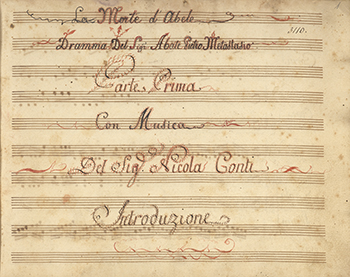 La Morte d'Abele
3110.
Dramma Del Sigr. Abate Pietro Metastasio
Parte Prima
Con Musica
Del Sigr. Nicola Conti
Introduzione